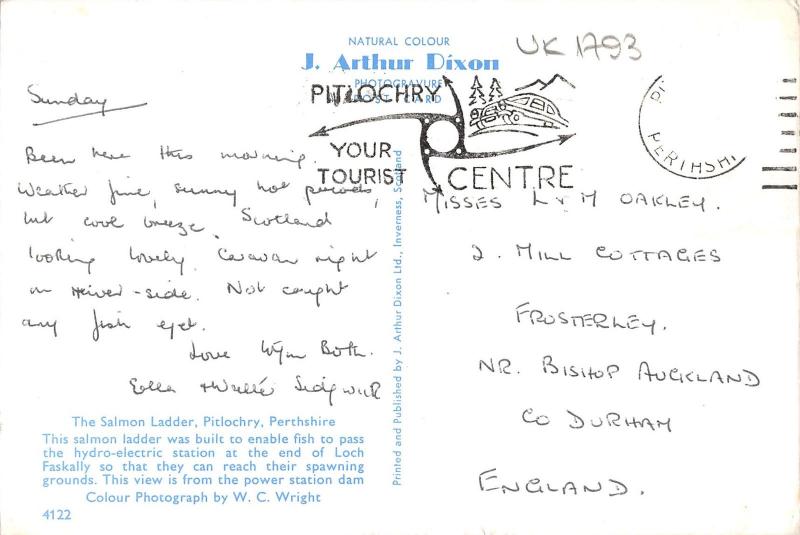 NATURAL COLOUR
J. Arthur Dixon
PHOTOGRAVURE
POST CARD
UK 1793
PITLOCHRY
YOUR
TOURIST
CENTRE
PERTHSHI
Sunday
Been here this morning.
Weather fine, sunny hot periods,
but cool breeze. Scotland
looking lovely. Caravan right
on river-side. Not caught
any fish yet.
Love Both.
Ella + Walter Sidgwick
The Salmon Ladder, Pitlochry, Perthshire
This salmon ladder was built to enable fish to pass
the hydro-electric station at the end of Loch
Faskally so that they can reach their spawning
grounds. This view is from the power station dam
Colour Photograph by W. C. Wright
4122
Printed and Published by J. Arthur Dixon Ltd., Inverness, Scotland
MISSES L & M OAKLEY.
2. MILL COTTAGES
FROSTERLEY.
NR. BISHOP AUCKLAND
CO DURHAM
ENGLAND.